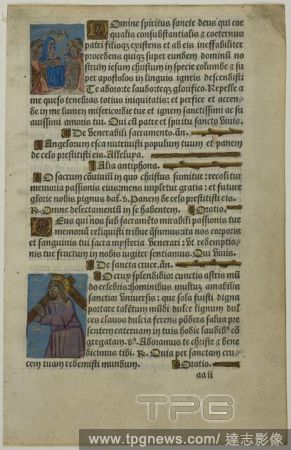 Omine spiritus sancte deus qui coe
qualis consubstantialis & coeternus
patri filioq; existens et ab eis ineffabiliter
procedens quiq; super eundem dominū no
strum iesum christum in specie columbe & su
per apostolos in linguis igneis descendisti
Te adoro: te laudo: teq; glorifico. Repelle a
me queso tenebras totius iniquitatis: et perfice et accen-
de in me lumen misericordie tue et ignem sanctissimi ac su
auissimi amoris tui. Qui cū patre et spiritu sancto viuis.
De venerabili sacramento. añ.
Angelorum esca nutriuisti populum tuum et panem
de celo prestitisti eis. Alleluya.
Alia antiphona.
O sacrum cōuiuiū in quo christus sumitur: recoli tur
memoria passionis eius: mens impletur gratia: et future
glorie nobis pignus datur. V. Panem de celo prestitisti eis.
R. Omne delectamentū in se habentem. Oratio.
Eus qui nobis sub sacramēto mirabili passionis tue
memoriā reliquisti tribue q̄sumus: ita nos corporis
et sanguinis tui sacra mysteria venerari: vt redemptio-
nis tue fructum in nobis iugiter sentiamus. Qui viuis.
De sancta cruce. añ.
O crux splendidior cunctis astris mū
do celebris: hominibus multuz amabilis
sanctior vniuersis: que sola fuisti digna
portare talētum mūdi dulce lignum dul
ces clauos dulcia ferens pōdera salua pre
sentem cateruam in tuis hodie laudibꝰ cō
gregatam. V. Adoramus te christe & bene
dicimus tibi. R. Quia per sanctam cru-
cem tuam redemisti mundum. Oratio.
aa ii
TPG
www.tpgnews.com / 達志影像